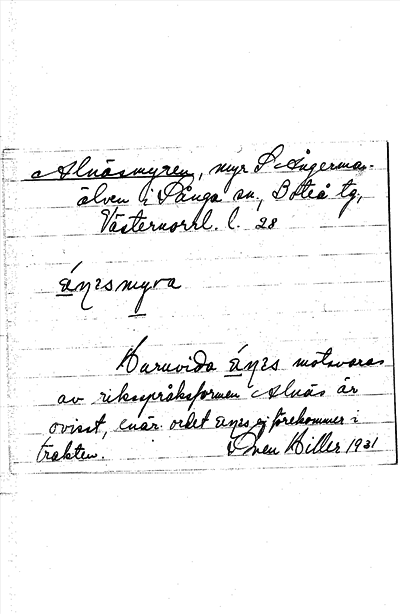 Alnäsmyren, myr S Ångerman-
älven i Sånga sn, Boteå tg,
Västernorrl. l. 28
áηεsmyra
Huruvida áηεs motsvaras
av riksspråksformen Alnäs är
ovisst, enär ordet áηεs ej förekommer i
trakten. Sven Hiller 1931